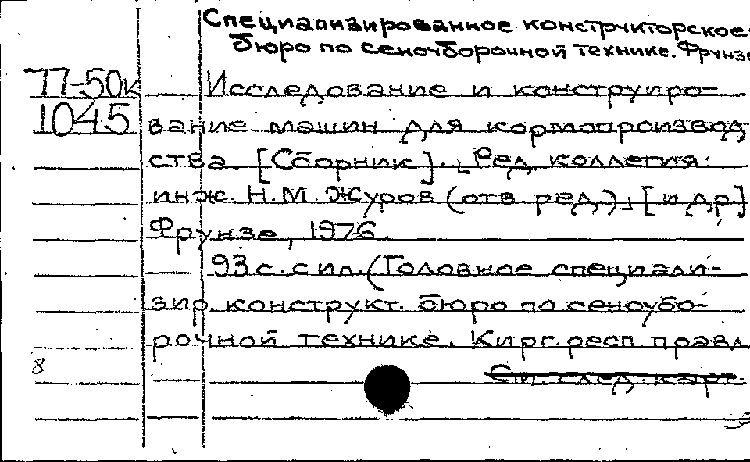 Специализированное конструкторское
бюро по сеноуборочной технике. Фрунзе
77-50к Исследование и конструиро-
1045 вание машин для кормопроизвод
ства. [Сборник]. Ред. коллегия:
инж. Н.М. Журов (отв. ред.), [и др.]
Фрунзе, 1976.
93 с. с ил. (Головное специали-
зир. конструкт. бюро по сеноубо-
рочной технике. Кирг. респ. правл.
8 См. след. карт.